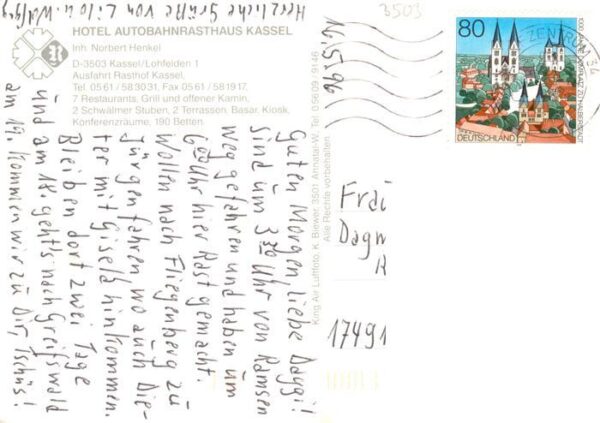 HOTEL AUTOBAHNRASTHAUS KASSEL
Inh. Norbert Henkel
D-3503 Kassel/Lohfelden 1
Ausfahrt Rasthof Kassel,
Tel. 05 61 / 58 30 31, Fax 05 61 / 58 19 17,
7 Restaurants, Grill und offener Kamin,
2 Schwälmer Stuben, 2 Terrassen, Basar, Kiosk,
Konferenzräume, 190 Betten.
16.5.96
Guten Morgen liebe Daggi!
sind um 3 30 Uhr von Ramsen
weg gefahren und haben um
6 00 Uhr hier Rast gemacht.
Wollen nach Fliegenberg zu
Jürgen fahren, wo auch Die-
ter mit Gisela hinkommen.
Bleiben dort zwei Tage
und am 18. geht's nach Greifswald
am 19. kommen wir zu Dir, Tschüs!
Herzliche Grüße von Lilo u. Wolfg
King Air Luftfoto, K. Biewer, 3501 Ahnatal-W. Tel. 0 56 09 / 91 46
Alle Rechte vorbehalten
3503
80
DEUTSCHLAND
ZENTRUM 34
Frau
Dagm
R
17491